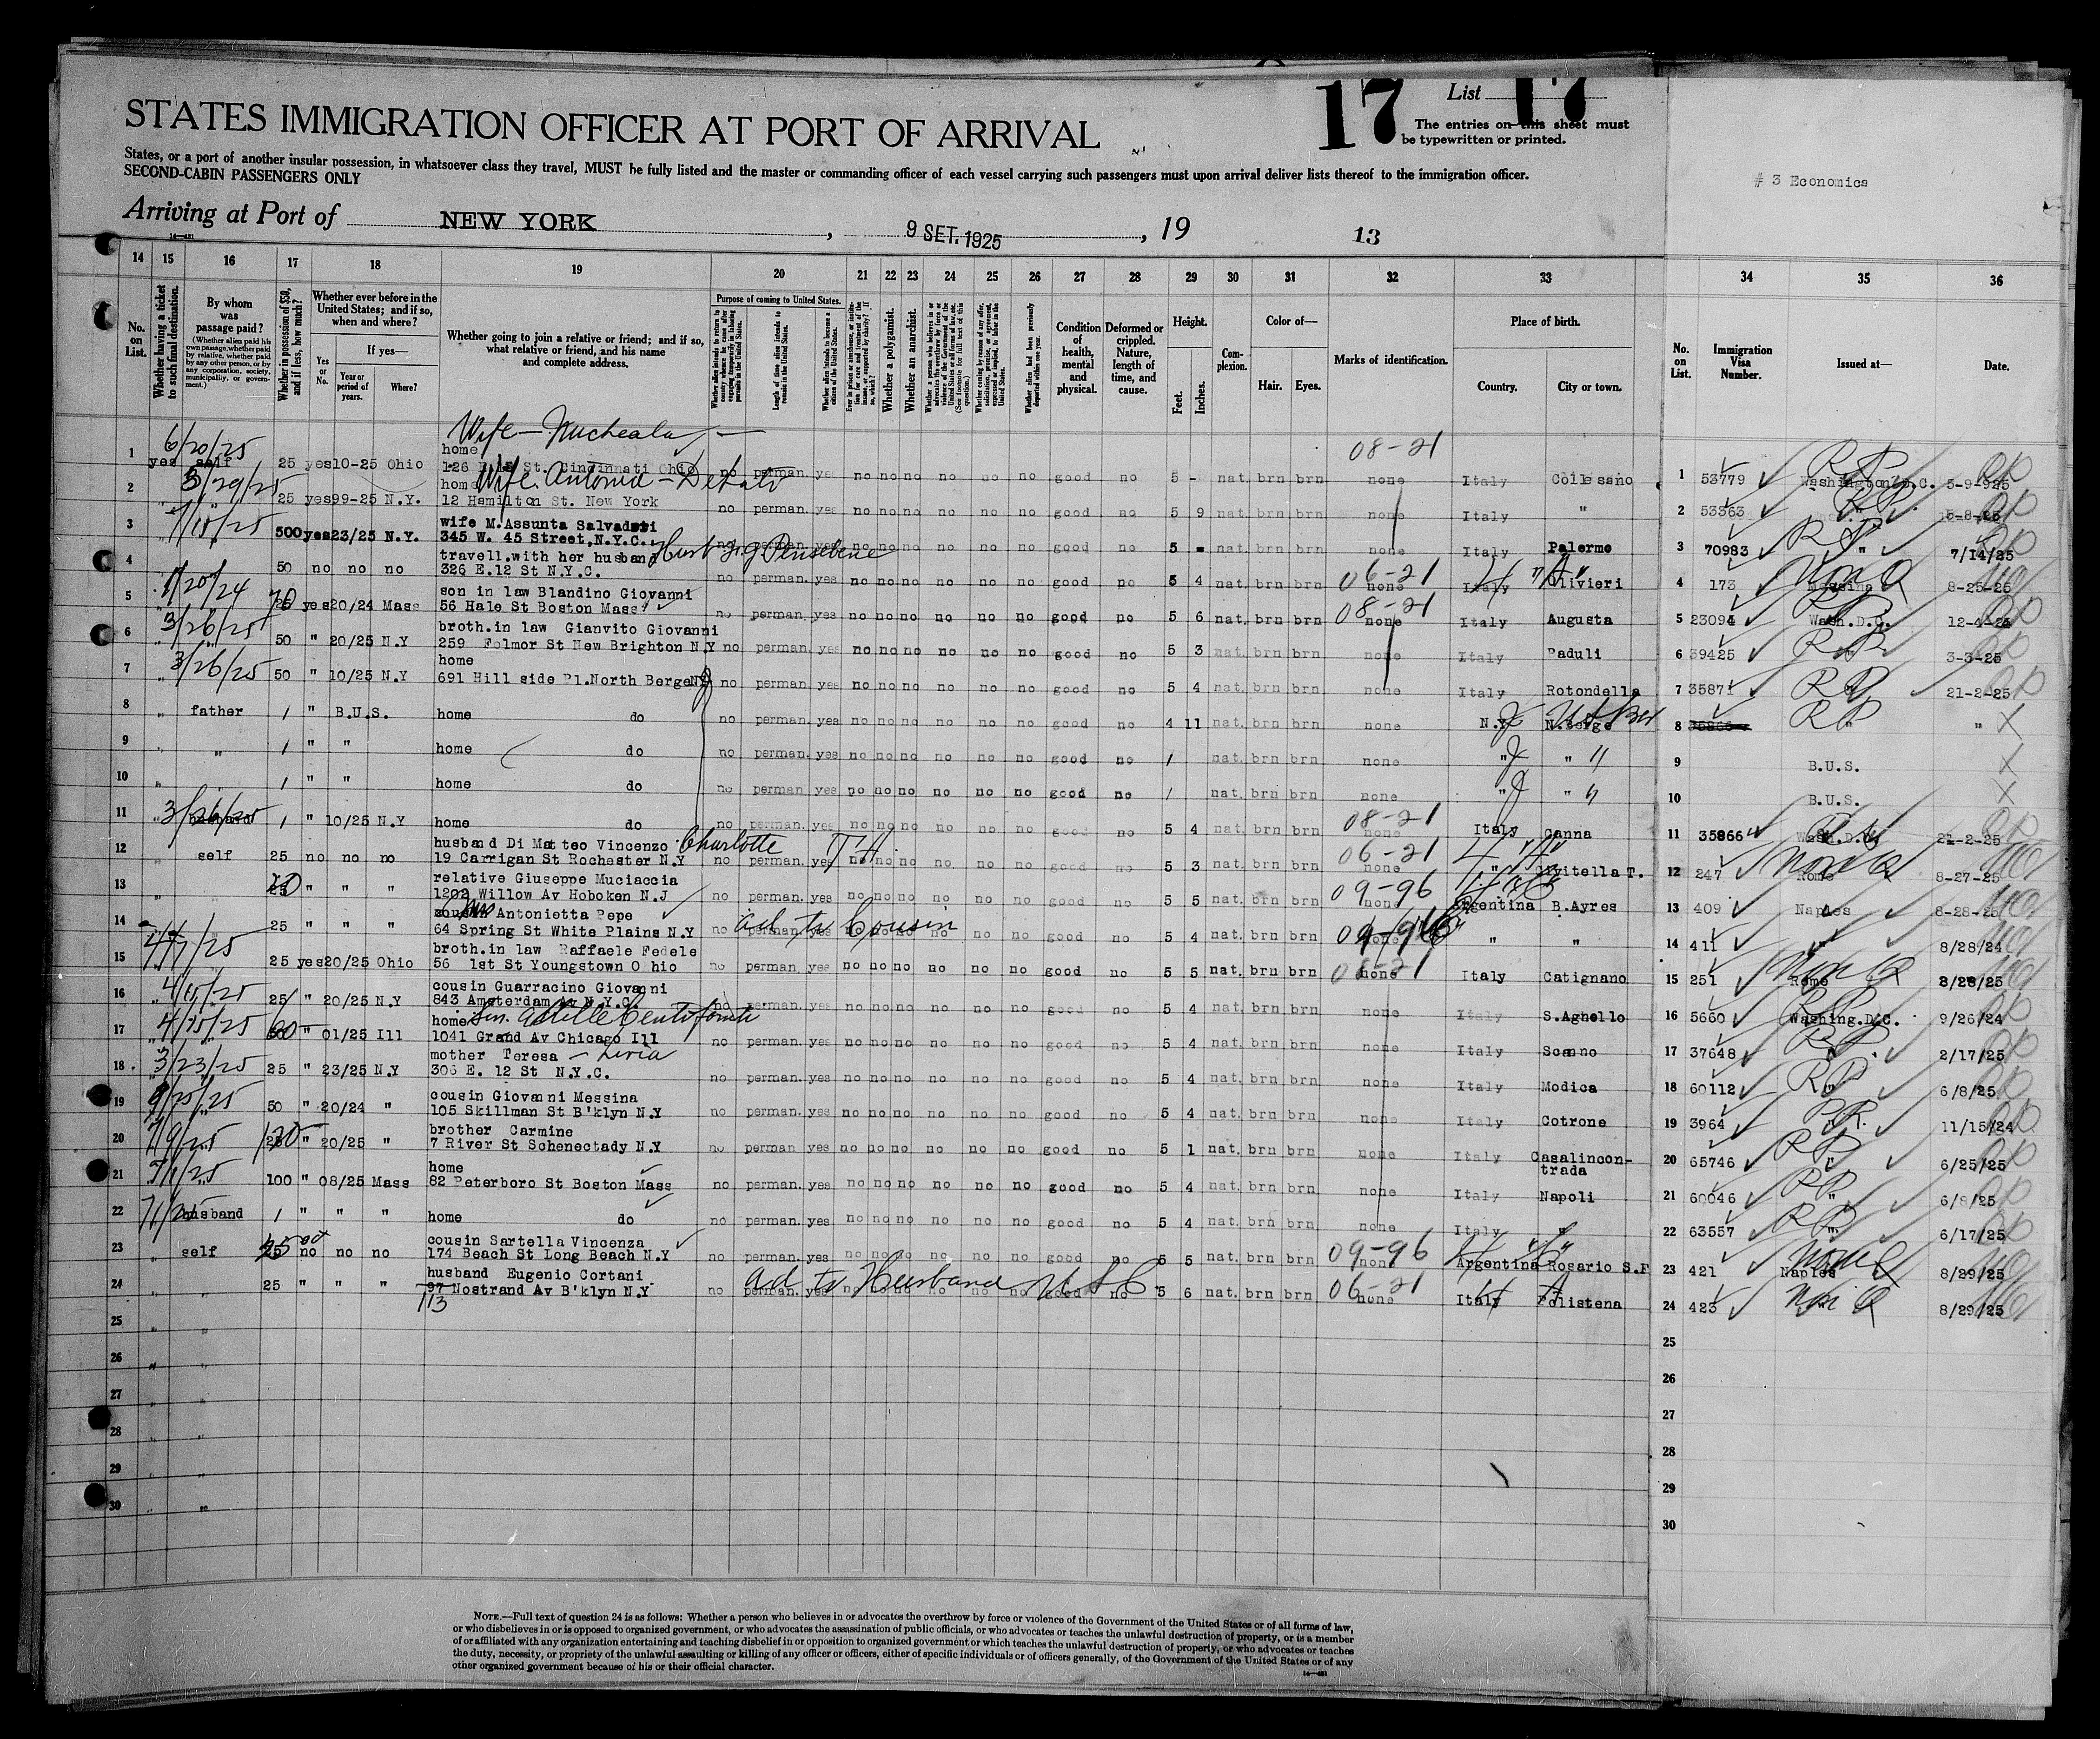 17
List 17
STATES IMMIGRATION OFFICER AT PORT OF ARRIVAL
The entries on this sheet must
be typewritten or printed.
States, or a port of another insular possession, in whatsoever class they travel, MUST be fully listed and the master or commanding officer of each vessel carrying such passengers must upon arrival deliver lists thereof to the immigration officer.
SECOND-CABIN PASSENGERS ONLY
# 3 Economics
Arriving at Port of NEW YORK, 9 SET. 1925, 19
13
14—481
14 15 16 17 18 19 20 21 22 23 24 25 26 27 28 29 30 31 32 33 34 35 36
No. on List.
Whether having a ticket to such final destination.
By whom was passage paid?
(Whether alien paid his own passage, whether paid by relative, whether paid by any other person, or by any corporation, society, municipality, or government.)
Whether in possession of $50, and if less, how much?
Whether ever before in the United States; and if so, when and where?
Yes or No.
If yes—
Year or period of years.
Where?
Whether going to join a relative or friend; and if so, what relative or friend, and his name and complete address.
Purpose of coming to United States.
Length of time alien intends to remain in the United States.
Whether alien intends to become a citizen of the United States.
Whether a polygamist.
Whether an anarchist.
Condition of health, mental and physical.
Deformed or crippled. Nature, length of time, and cause.
Height.
Feet.
Inches.
Complexion.
Color of—
Hair.
Eyes.
Marks of identification.
Place of birth.
Country.
City or town.
No. on List.
Immigration Visa Number.
Issued at—
Date.
Wife —
1 6/20/25 yes self 25 yes 10-25 Ohio home 126 St. Cincinnati Ohio no perman. yes no no no no no no good no 5 - nat. brn brn 08-21 none Italy Collesano 1 53779 RP Washington D.C. 5-9-925
2 3/29/25 25 yes 99-25 N.Y. home Wife Antonia 12 Hamilton St. New York no perman. yes no no no no no no good no 5 9 nat. brn brn none Italy " 2 53363 RP 5-8-25
3 7/15/25 500 yes 23/25 N.Y. wife M. Assunta Salvadori 345 W. 45 Street, N.Y.C. yes no no no no no no good no 5 - nat. brn brn none Italy Palermo 3 70983 RP " 7/14/25
4 50 no no no travell. with her husband 326 E.12 St N.Y.C. no perman. yes no no no no no no good no 5 4 nat. brn brn 06-21 none Italy Olivieri 4 173 Non Q Messina 8-25-25
5 1/20/24 yes 20/24 Mass son in law Blandino Giovanni 56 Hale St Boston Mass no perman. yes no no no no no no good no 5 6 nat. brn brn 08-21 none Italy Augusta 5 23094 Wash.D.C.
6 3/26/25 50 " 20/25 N.Y broth.in law Gianvito Giovanni 259 Folmor St New Brighton N.Y no perman. yes no no no no no no good no 5 3 nat. brn brn none Italy Paduli 6 39425 RP 3-3-25
7 3/26/25 50 " 10/25 N.Y home 691 Hill side Pl.North Berge no perman. yes no no no no no no good no 5 4 nat. brn brn none Italy Rotondella 7 35871 RP 21-2-25
8 " father 1 " B.U.S. home do no perman. yes no no no no no no good no 4 11 nat. brn brn none N.Y N.Berge 8 RP " " X
9 " " 1 " " home do no perman. yes no no no no no no good no 1 nat. brn brn none " " 9 B.U.S. X
10 " 1 " " home do no perman. yes no no no no no no good no 1 nat. brn brn none " " 10 B.U.S. X
11 3/26/25 1 " 10/25 N.Y home do no perman. yes no no no no no no good no 5 4 nat. brn brn 08-21 none Italy Canna 11 35866 Wash.D.C. 21-2-25
12 self 25 no no no husband Di Matteo Vincenzo Charlotte 19 Carrigan St Rochester N.Y no perman. yes no no no no no no good no 5 3 nat. brn brn 06-21 " Civitella T. 12 247 Non Q Rome 8-27-25
13 " " " " relative Giuseppe Muciaccia 1202 Willow Av Hoboken N.J no perman. yes no no no no no no good no 5 5 nat. brn brn 09-96 none Argentina B.Ayres 13 409 Naples 8-28-25
14 25 " " " cousin Antonietta Pepe 64 Spring St White Plains N.Y no perman. yes ad to Cousin no no no good no 5 4 nat. brn brn 09-96 none " " 14 411 " 8/28/24
15 4/7/25 25 yes 20/25 Ohio broth.in law Raffaele Fedele 56 1st St Youngstown Ohio no perman. yes no no no no no no good no 5 5 nat. brn brn none Italy Catignano 15 251 Non Q Rome 8/28/25
16 4/15/25 25 " 20/25 N.Y cousin Guarracino Giovanni 843 Amsterdam Av N.Y.C. no perman. yes no no no no no no good no 5 4 nat. brn brn none Italy S.Agnello 16 5660 Washing.D.C. 9/26/24
17 4/15/25 " 01/25 Ill home 1041 Grand Av Chicago Ill no perman. yes no no no no no no good no 5 4 nat. brn brn none Italy Scanno 17 37648 RP 2/17/25
18 3/23/25 25 " 23/25 N.Y mother Teresa — Livia 306 E. 12 St N.Y.C. no perman. yes no no no no no no good no 5 4 nat. brn brn none Italy Modica 18 60112 RP 6/8/25
19 50 " 20/24 " cousin Giovanni Messina 105 Skillman St B'klyn N.Y no perman. yes no no no no no no good no 5 4 nat. brn brn none Italy Cotrone 19 3964 11/15/24
20 7/9/25 " 20/25 " brother Carmine 7 River St Schenectady N.Y no perman. yes no no no no no no good no 5 1 nat. brn brn none Italy Casalincontrada 20 65746 RP " 6/25/25
21 100 " 08/25 Mass home 82 Peterboro St Boston Mass no perman. yes no no no no no no good no 5 4 nat. brn brn none Italy Napoli 21 60046 RP " 6/8/25
22 husband 1 " " " home do no perman. yes no no no no no no good no 5 4 nat. brn brn none Italy " 22 63557 RP 6/17/25
23 " self no no no cousin Sartella Vincenza 174 Beach St Long Beach N.Y no perman. yes no no no no no no good no 5 5 nat. brn brn 09-96 none Argentina Rosario S.F 23 421 Naples 8/29/25
24 " 25 " " " husband Eugenio Cortani 97 113 Nostrand Av B'klyn N.Y no perman. yes ad to Husband USC no good no 5 6 nat. brn brn 06-21 none Italy Polistena 24 423 Non Q 8/29/25
25 " 25
26 " " 26
27 " " 27
28 " " 28
29 " " 29
30 " " 30
NOTE.—Full text of question 24 is as follows: Whether a person who believes in or advocates the overthrow by force or violence of the Government of the United States or of all forms of law,
or who disbelieves in or is opposed to organized government, or who advocates the assassination of public officials, or who advocates or teaches the unlawful destruction of property, or is a member
of or affiliated with any organization entertaining and teaching disbelief in or opposition to organized government or which teaches the unlawful destruction of property, or who advocates or teaches
the duty, necessity, or propriety of the unlawful assaulting or killing of any officer or officers, either of specific individuals or of officers generally, of the Government of the United States or of any
other organized government because of his or their official character.
14—481